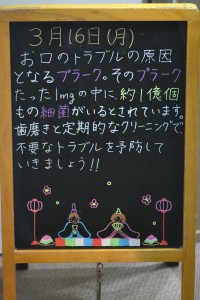 3月16日(月)
お口のトラブルの原因
となるプラーク。そのプラーク
たった1mgの中に、約1億個
もの細菌がいるとされています。
歯磨きと定期的なクリーニングで、
不要なトラブルを予防して
いきましょう!!